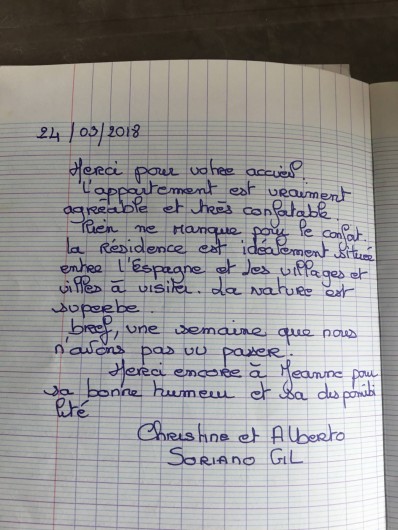 24/03/2018
Merci pour votre accueil.
L'appartement est vraiment
agréable et très confatable.
Rien ne manque pour le confat.
la Résidence est idéalement située
entre l'Espagne et les villages et
villes à visiter. La nature est
superbe.
bref, une semaine que nous
n'avons pas vu passer.
Merci encore à Jeanne pour
sa bonne humeur et sa disponibi
lité
Christine et Alberto
SORIANO GIL